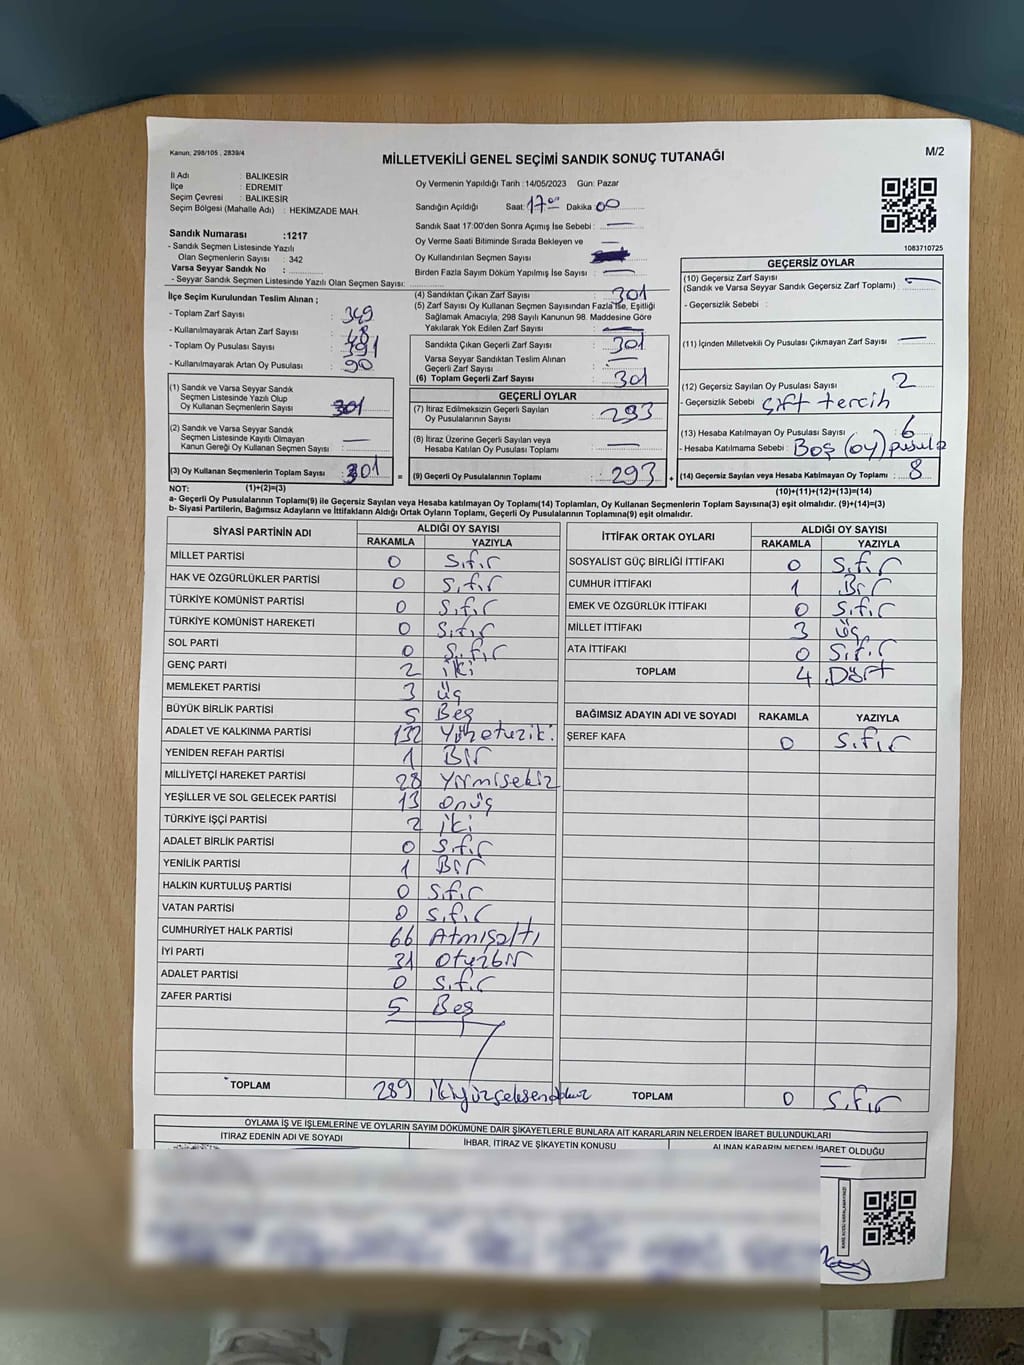 Kanun; 298/105 , 2839/4
MİLLETVEKİLİ GENEL SEÇİMİ SANDIK SONUÇ TUTANAĞI
M/2
İl Adı : BALIKESİR
İlçe : EDREMIT
Seçim Çevresi : BALIKESİR
Seçim Bölgesi (Mahalle Adı) : HEKİMZADE MAH.
Sandık Numarası :1217
- Sandık Seçmen Listesinde Yazılı
Olan Seçmenlerin Sayısı : 342
Varsa Seyyar Sandık No :
- Seyyar Sandık Seçmen Listesinde Yazılı Olan Seçmen Sayısı:
Oy Vermenin Yapıldığı Tarih :14/05/2023 Gün: Pazar
Sandığın Açıldığı Saat: 17 00 Dakika 00
Sandık Saat 17:00'den Sonra Açımış İse Sebebi : —
Oy Verme Saati Bitiminde Sırada Bekleyen ve
Oy Kullandırılan Seçmen Sayısı
Birden Fazla Sayım Döküm Yapılmış İse Sayısı : —
1083710725
İlçe Seçim Kurulundan Teslim Alınan ;
- Toplam Zarf Sayısı : 349
- Kullanılmayarak Artan Zarf Sayısı : 48
- Toplam Oy Pusulası Sayısı : 391
- Kullanılmayarak Artan Oy Pusulası : 90
(1) Sandık ve Varsa Seyyar Sandık
Seçmen Listesinde Yazılı Olup
Oy Kullanan Seçmenlerin Sayısı : 301
(2) Sandık ve Varsa Seyyar Sandık
Seçmen Listesinde Kayıtlı Olmayan
Kanun Gereği Oy Kullanan Seçmen Sayısı : —
(3) Oy Kullanan Seçmenlerin Toplam Sayısı : 301
(4) Sandıktan Çıkan Zarf Sayısı : 301
(5) Zarf Sayısı Oy Kullanan Seçmen Sayısından Fazla İse, Eşitliği
Sağlamak Amacıyla, 298 Sayılı Kanunun 98. Maddesine Göre
Yakılarak Yok Edilen Zarf Sayısı : —
Sandıkta Çıkan Geçerli Zarf Sayısı : 301
Varsa Seyyar Sandıktan Teslim Alınan
Geçerli Zarf Sayısı : —
(6) Toplam Geçerli Zarf Sayısı : 301
GEÇERLİ OYLAR
(7) İtiraz Edilmeksizin Geçerli Sayılan
Oy Pusulalarının Sayısı : 293
(8) İtiraz Üzerine Geçerli Sayılan veya
Hesaba Katılan Oy Pusulası Toplamı : —
= (9) Geçerli Oy Pusulalarının Toplamı : 293 +
GEÇERSİZ OYLAR
(10) Geçersiz Zarf Sayısı
(Sandık ve Varsa Seyyar Sandık Geçersiz Zarf Toplamı) : —
- Geçersizlik Sebebi :
(11) İçinden Milletvekili Oy Pusulası Çıkmayan Zarf Sayısı : —
(12) Geçersiz Sayılan Oy Pusulası Sayısı : 2
- Geçersizlik Sebebi : Çift tercih
(13) Hesaba Katılmayan Oy Pusulası Sayısı : 6
- Hesaba Katılmama Sebebi : Boş (oy) pusula
(14) Geçersiz Sayılan veya Hesaba Katılmayan Oy Toplamı : 8
NOT: (1)+(2)=(3)
(10)+(11)+(12)+(13)=(14)
a- Geçerli Oy Pusulalarının Toplamı(9) ile Geçersiz Sayılan veya Hesaba katılmayan Oy Toplamı(14) Toplamları, Oy Kullanan Seçmenlerin Toplam Sayısına(3) eşit olmalıdır. (9)+(14)=(3)
b- Siyasi Partilerin, Bağımsız Adayların ve İttifakların Aldığı Ortak Oyların Toplamı, Geçerli Oy Pusulalarının Toplamına(9) eşit olmalıdır.
SİYASİ PARTİNİN ADI ALDIĞI OY SAYISI
RAKAMLA YAZIYLA
MİLLET PARTİSİ 0 Sıfır
HAK VE ÖZGÜRLÜKLER PARTİSİ 0 Sıfır
TÜRKİYE KOMÜNİST PARTİSİ 0 Sıfır
TÜRKİYE KOMÜNİST HAREKETİ 0 Sıfır
SOL PARTİ 0 Sıfır
GENÇ PARTİ 2 iki
MEMLEKET PARTİSİ 3 üç
BÜYÜK BİRLİK PARTİSİ 5 Beş
ADALET VE KALKINMA PARTİSİ 132 Yüzotuziki
YENİDEN REFAH PARTİSİ 1 Bir
MİLLİYETÇİ HAREKET PARTİSİ 28 Yirmisekiz
YEŞİLLER VE SOL GELECEK PARTİSİ 13 onüç
TÜRKİYE İŞÇİ PARTİSİ 2 iki
ADALET BİRLİK PARTİSİ 0 Sıfır
YENİLİK PARTİSİ 1 Bir
HALKIN KURTULUŞ PARTİSİ 0 Sıfır
VATAN PARTİSİ 0 Sıfır
CUMHURİYET HALK PARTİSİ 66 Atmışaltı
İYİ PARTİ 31 otuzbir
ADALET PARTİSİ 0 Sıfır
ZAFER PARTİSİ 5 Beş
TOPLAM 289 ikiyüzseksendokuz
İTTİFAK ORTAK OYLARI ALDIĞI OY SAYISI
RAKAMLA YAZIYLA
SOSYALİST GÜÇ BİRLİĞİ İTTİFAKI 0 Sıfır
CUMHUR İTTİFAKI 1 Bir
EMEK VE ÖZGÜRLÜK İTTİFAKI 0 Sıfır
MİLLET İTTİFAKI 3 üç
ATA İTTİFAKI 0 Sıfır
TOPLAM 4 Dört
BAĞIMSIZ ADAYIN ADI VE SOYADI RAKAMLA YAZIYLA
ŞEREF KAFA 0 Sıfır
TOPLAM 0 Sıfır
OYLAMA İŞ VE İŞLEMLERİNE VE OYLARIN SAYIM DÖKÜMÜNE DAİR ŞİKAYETLERLE BUNLARA AİT KARARLARIN NELERDEN İBARET BULUNDUKLARI
İTİRAZ EDENİN ADI VE SOYADI İHBAR, İTİRAZ VE ŞİKAYETİN KONUSU ALINAN KARARIN NEDEN İBARET OLDUĞU